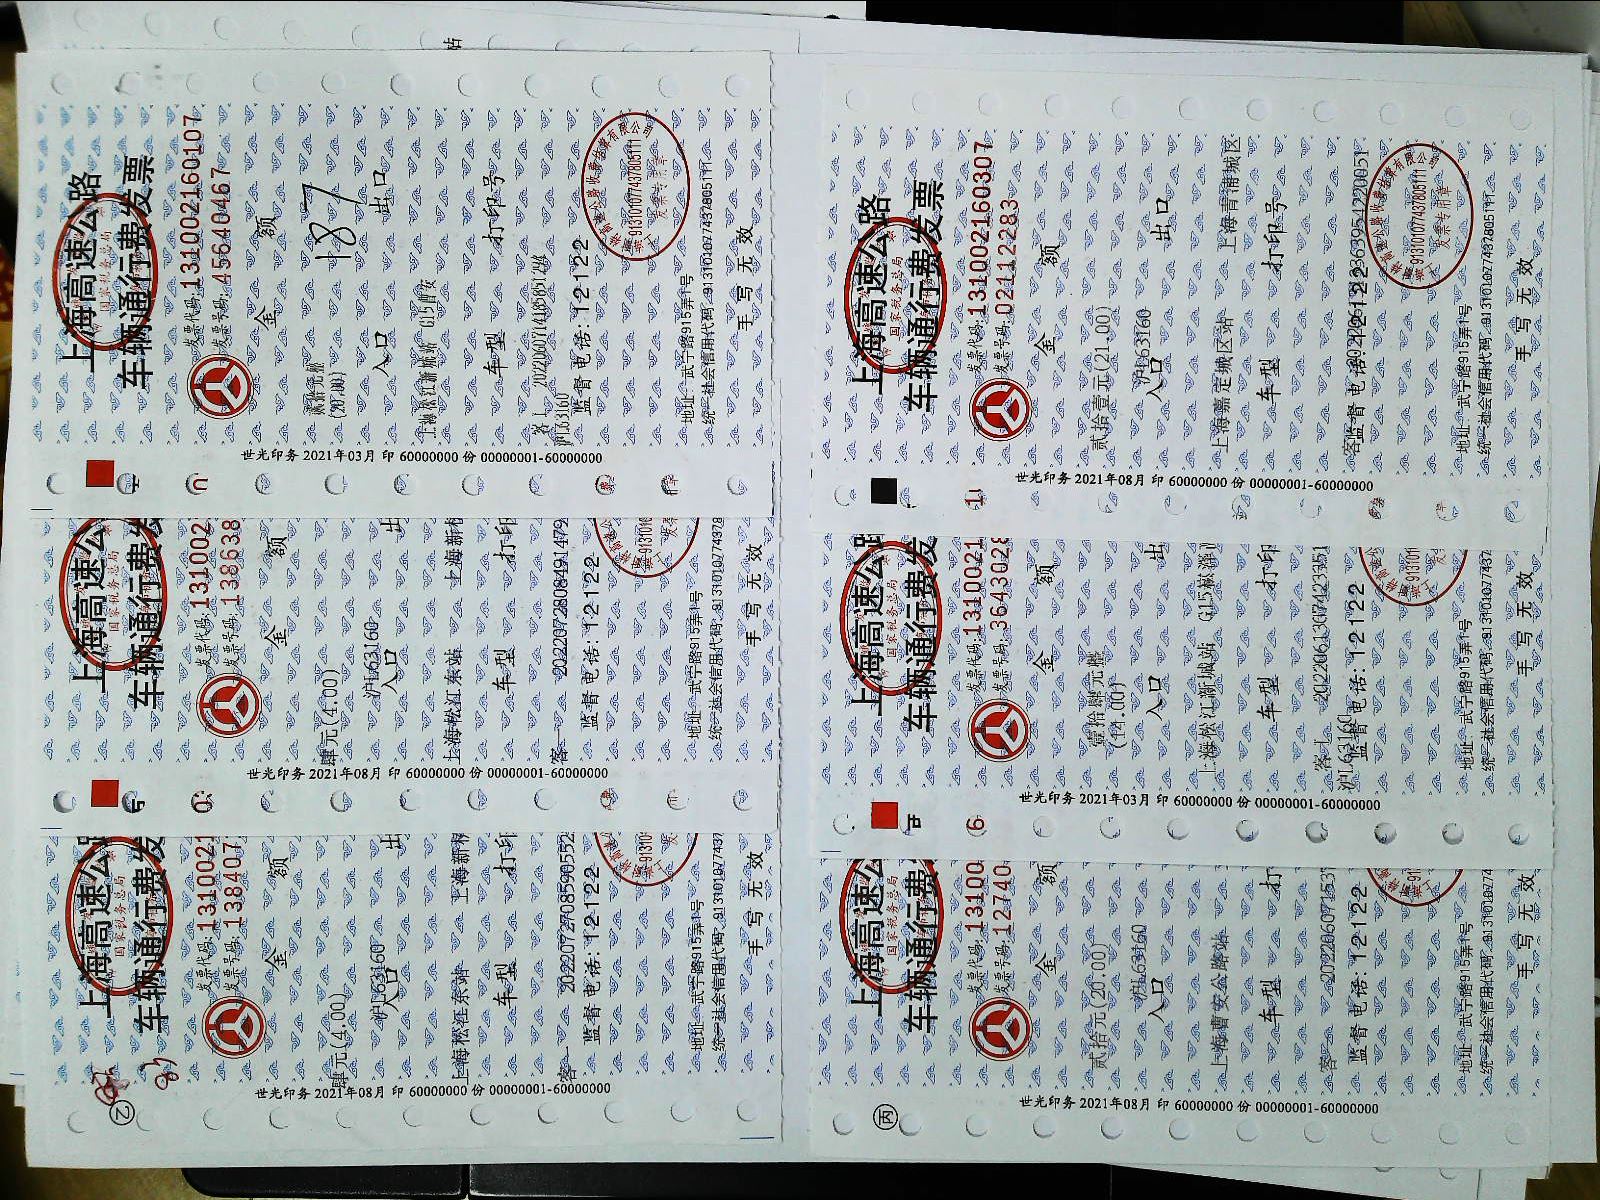 上海高速公路
车辆通行费发票
国家税务总局
发票代码:131002160107
发票号码:45640467
金 额
187
贰拾元整
(20.00)
入口 出口
上海松江新城站 G15嘉安
车型 打印号
客 1
沪L63160
监督电话:12122
地址:武宁路915弄1号
统一社会信用代码:91310107743780511
手写无效
世光印务 2021年03月 印 60000000 份 00000001-60000000
上海高速公
车辆通行费发
国家税务总局
发票代码:131002
发票号码:138638
金 额
肆元(4.00)
沪L63160
入口 出
上海松江东站 上海新
车型 打印
客 20220728084914
监督电话:12122
地址:武宁路915弄1号
统一社会信用代码:913101077437
手写无效
世光印务 2021年08月 印 60000000 份 00000001-60000000
上海高速公路
车辆通行费发
国家税务总局
发票代码:1310021
发票号码:138407
金 额
肆元(4.00)
沪L63160
入口 出
上海松江东站 上海新
车型 打印
客 20220727085905
监督电话:12122
地址:武宁路915弄1号
统一社会信用代码:913101077437
手写无效
世光印务 2021年08月 印 60000000 份 00000001-60000000
②
上海高速公路
车辆通行费发票
国家税务总局
发票代码:131002160307
发票号码:02112283
金 额
贰拾壹元(21.00)
沪L63160
入口 出口
上海嘉定城区站 上海青浦城区
车型 打印号
客
监督电话:12122
地址:武宁路915弄1号
统一社会信用代码:91310107743780511
手写无效
世光印务 2021年08月 印 60000000 份 00000001-60000000
上海高速公路
车辆通行费发
国家税务总局
发票代码:1310021
发票号码:3643028
金 额
壹拾肆元整
(14.00)
入口 出
上海松江新城站
车型 打印
客 1
沪L63160
监督电话:12122
地址:武宁路915弄1号
统一社会信用代码:913101077437
手写无效
世光印务 2021年03月 印 60000000 份 00000001-60000000
上海高速公路
车辆通行费发
国家税务总局
发票代码:13100
发票号码:12740
金 额
贰拾元(20.00)
沪L63160
入口
上海曹安公路站
车型 打
客 202206071
监督电话:12122
地址:武宁路915弄1号
统一社会信用代码:9131010774
手写无效
世光印务 2021年08月 印 60000000 份 00000001-60000000
丙